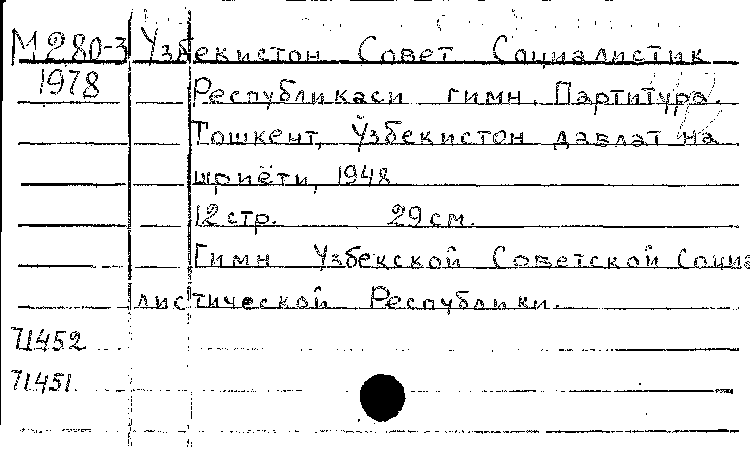 М280-3 Узбекистон Совет Социалистик
1978 Республикаси гимн. Партитура.
Тошкент, Ўзбекистон давлат на
шриёти, 1948
12 стр. 29 см.
Гимн Узбекской Советской Социа
листической Республики.
71452
71451